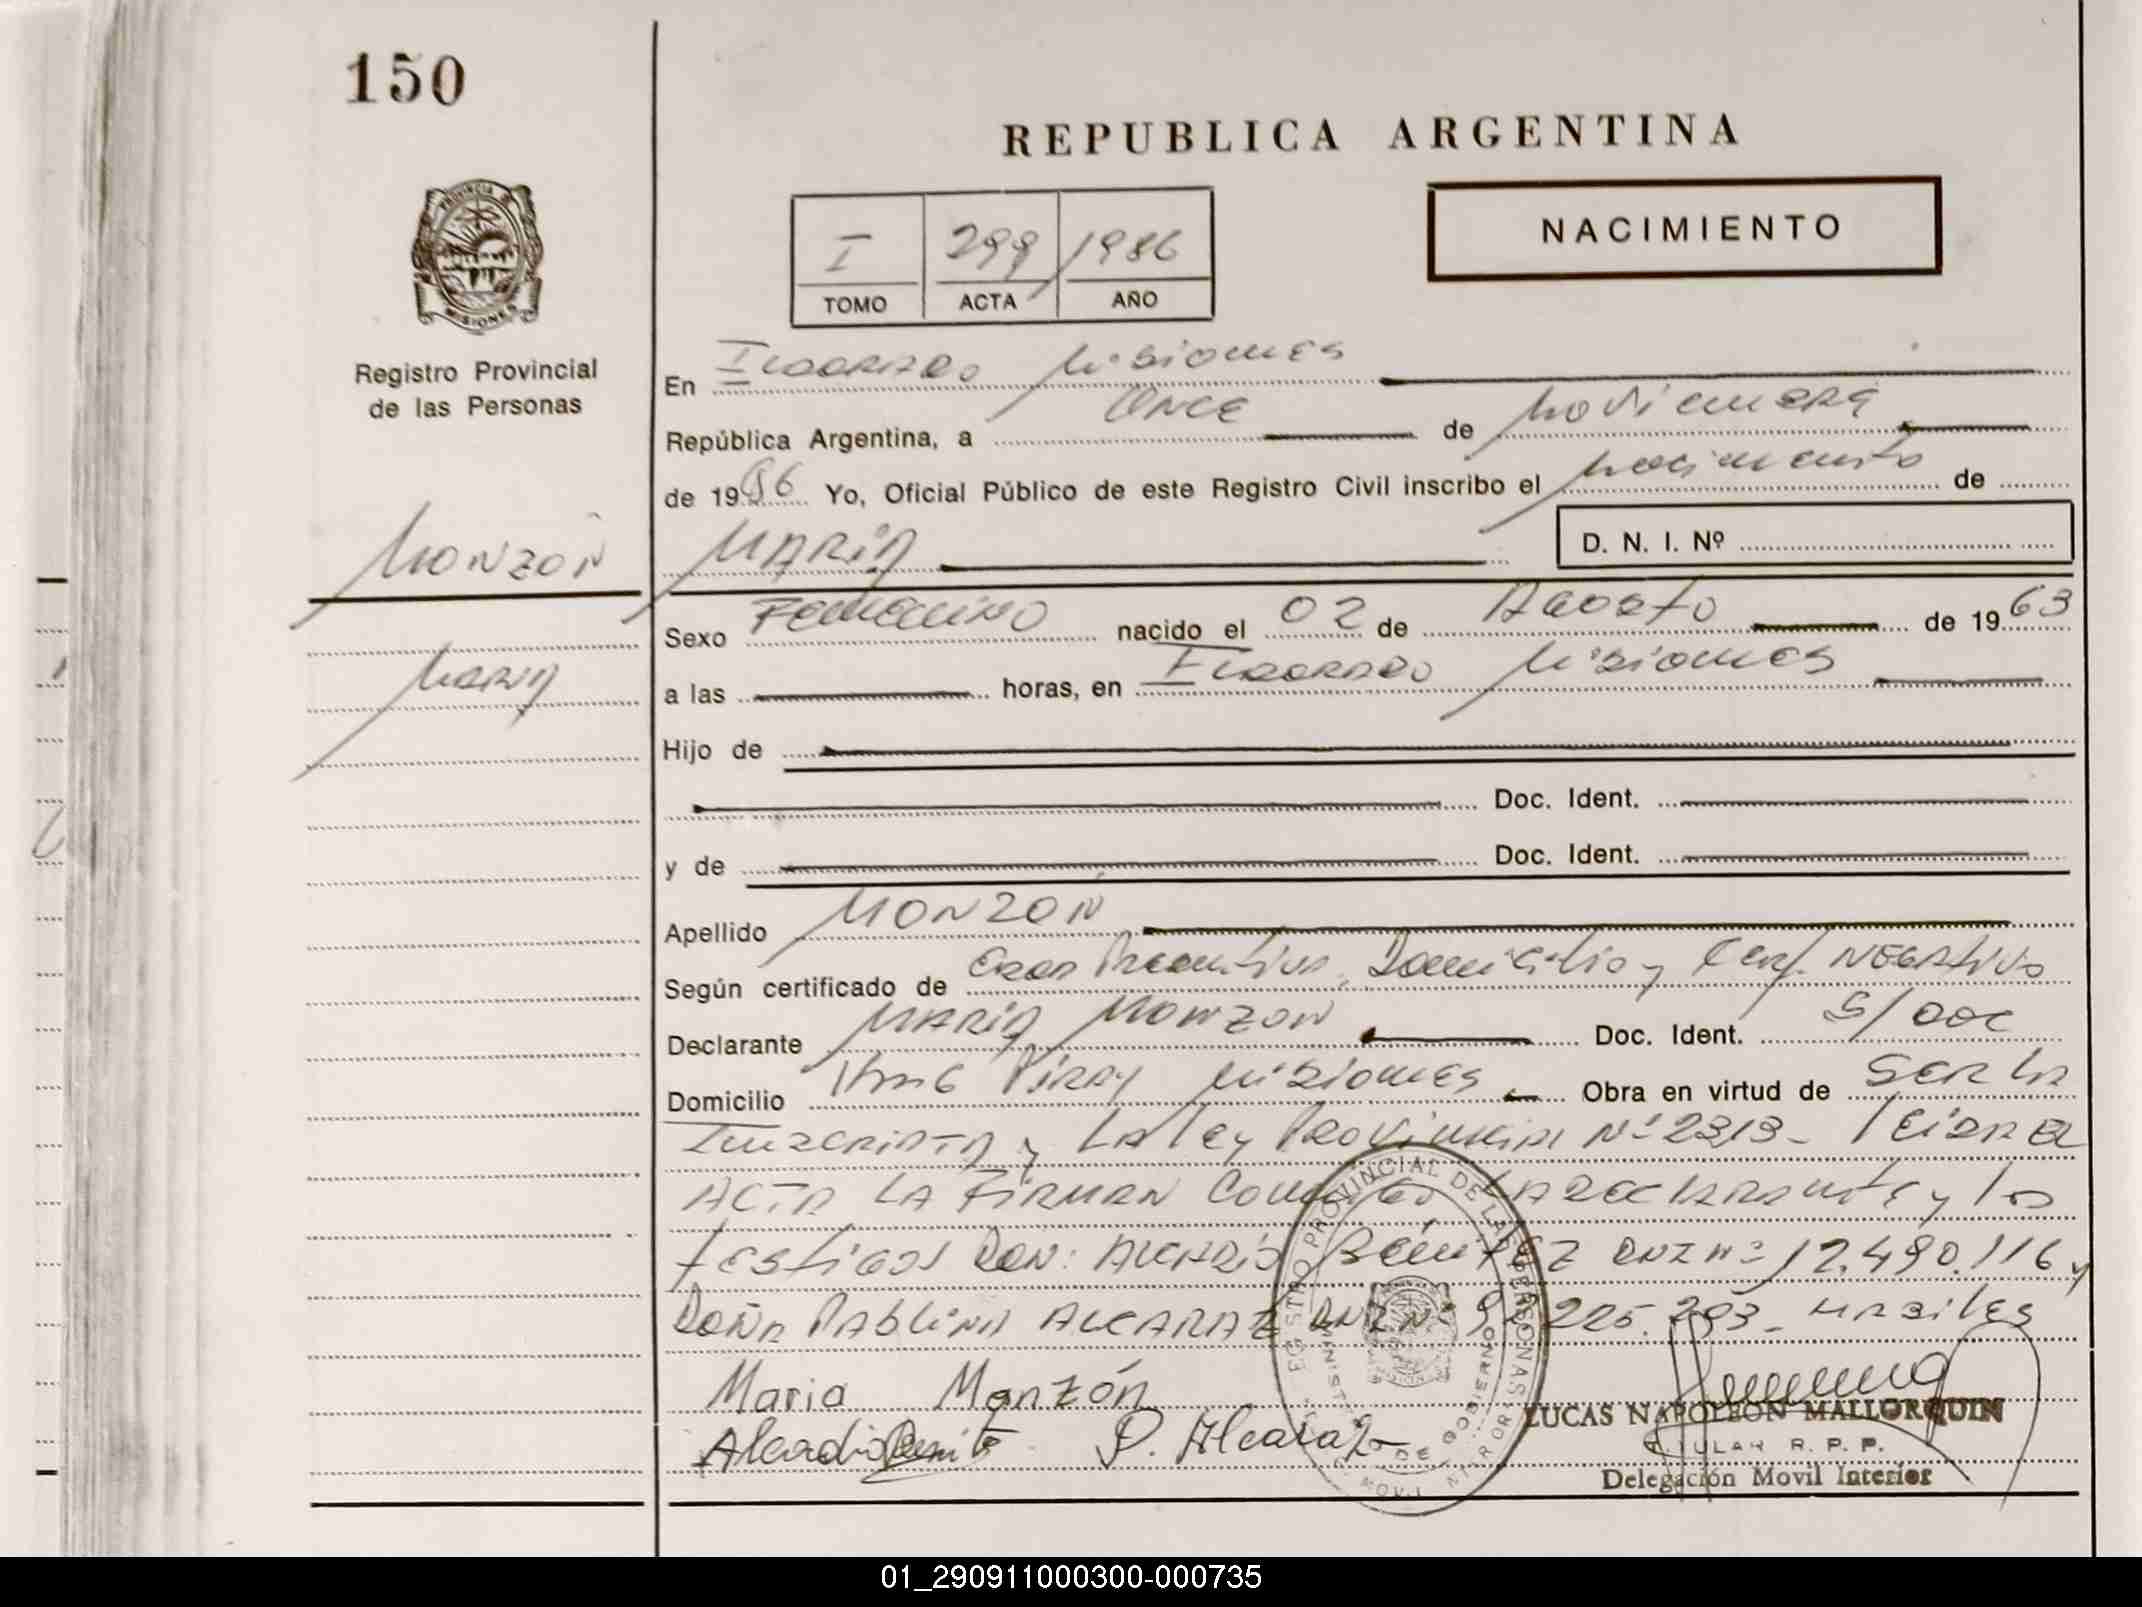 150
REPUBLICA ARGENTINA
NACIMIENTO
I 299 1986
TOMO ACTA AÑO
PROVINCIA DE
MISIONES
Registro Provincial
de las Personas
En ELDORADO Misiones
República Argentina, a ONCE de Noviembre
de 1986 Yo, Oficial Público de este Registro Civil inscribo el Nacimiento de
MONZON
MARIA
D. N. I. Nº
Maria
Sexo Femenino nacido el 02 de Agosto de 1963
a las horas, en ELDORADO Misiones
Hijo de
Doc. Ident.
y de Doc. Ident.
Apellido MONZON
Según certificado de Edad Presuntiva, Domicilio y Cert. NEGATIVO
Declarante MARIA MONZON Doc. Ident. S/DOC
Domicilio Piray Misiones Obra en virtud de SER LA
Inscripta y La Ley Provincial Nº 2313- Leida el
ACTA LA FIRMAN Conmigo LA DEClarante y los
testigos DON: ALCADIO Benitez DNI Nº 12.490.116 y
DOÑA PABLINA ALCARAZ DNI Nº 225.293- Habiles
Maria Monzón
Alcadio Benite P. Alcaraz
REGISTRO PROVINCIAL DE LAS PERSONAS
MINISTERIO DE GOBIERNO
LUCAS NAPOLEON MALLORQUIN
TITULAR R. P. P.
Delegación Movil Interior
01_290911000300-000735